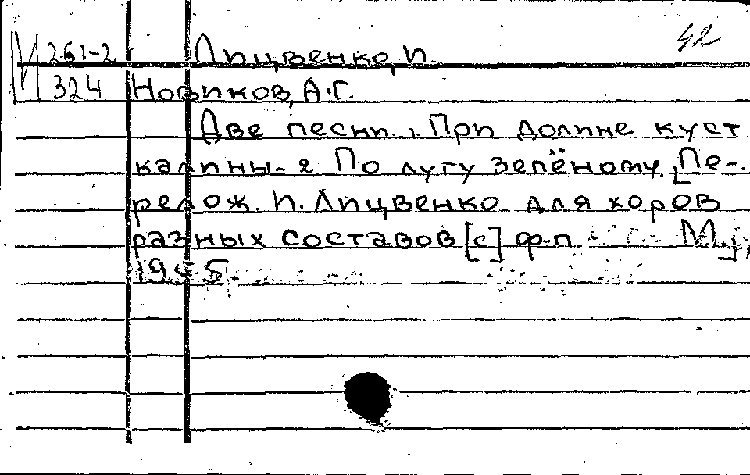 М 261-2 Лицвенко, П. 42
324 Новиков, А.Г.
Две песни. 1. При долине куст
калины. 2. По лугу зелёному. [Пе-
релож. П. Лицвенко для хоров
разных составов [с] ф-п М.,